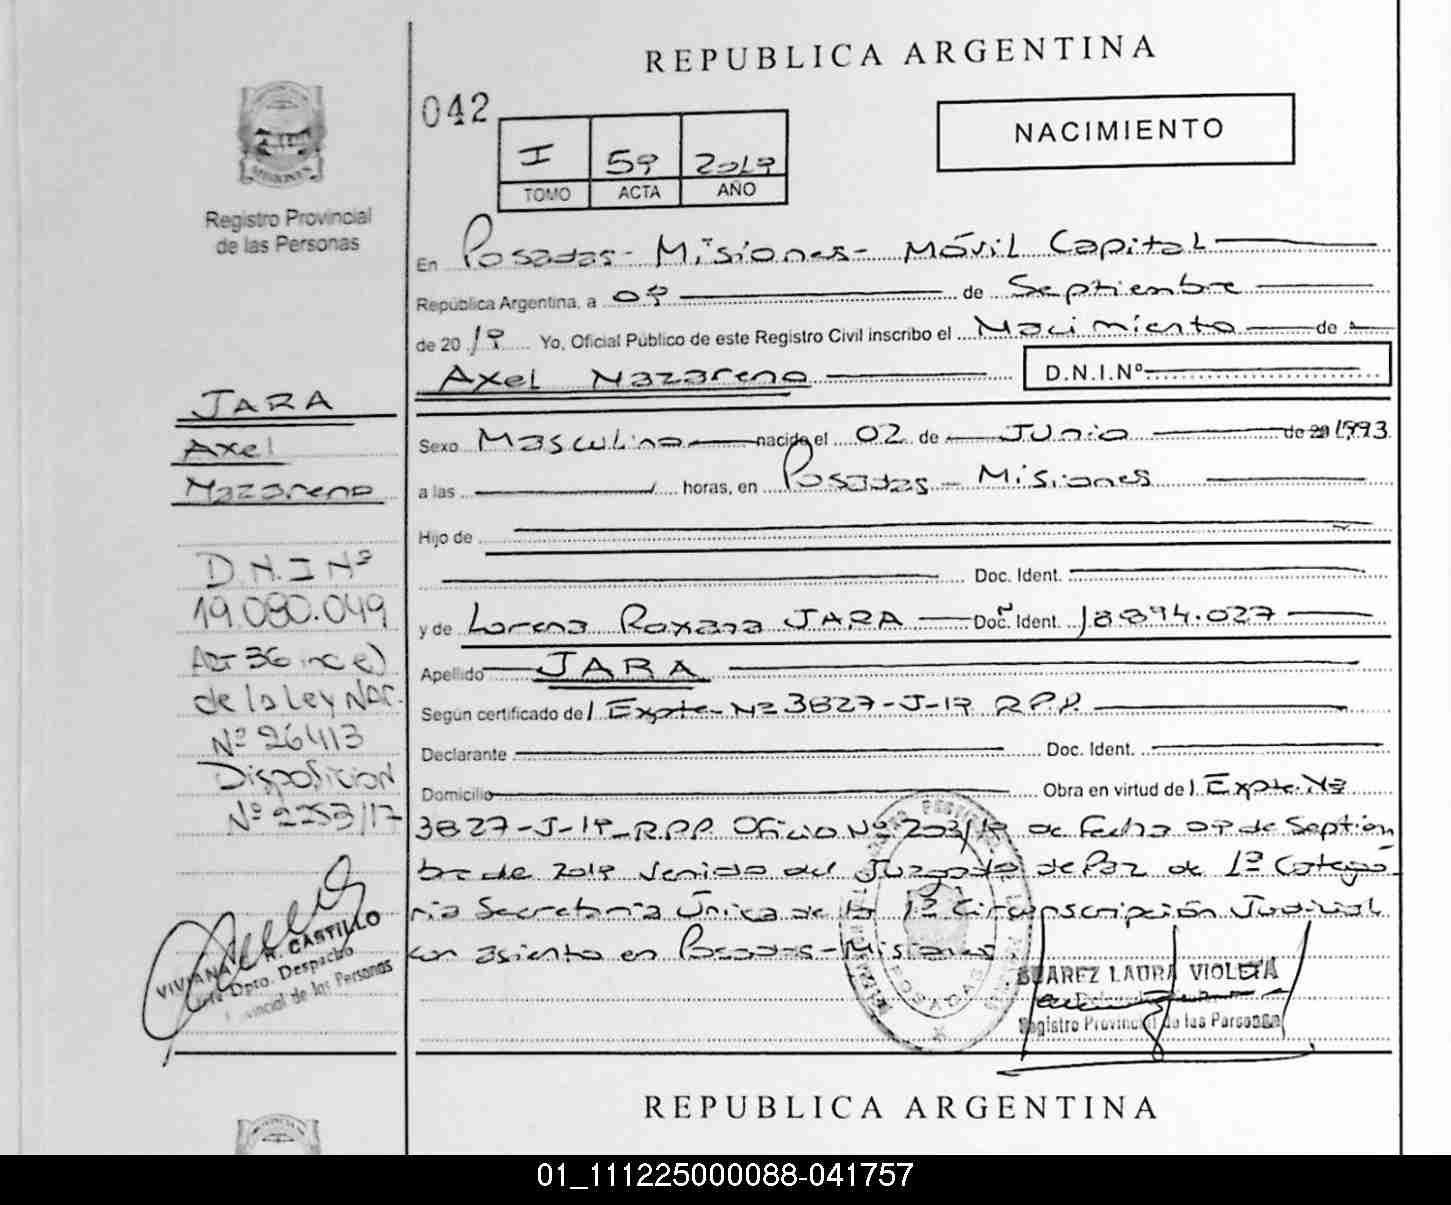 REPUBLICA ARGENTINA
042
NACIMIENTO
I 59 2019
TOMO ACTA AÑO
MISIONES
Registro Provincial
de las Personas
En Posadas - Misiones - Móvil Capital
República Argentina, a 09 de Septiembre
de 2019 Yo, Oficial Público de este Registro Civil inscribo el Nacimiento de
Axel Nazareno D.N.I.Nº
JARA
Axel
Nazareno
D.N.I Nº
19.080.049
Art 36 inc e)
de la Ley Nac.
Nº 26413
Disposicion
Nº 2253/17
Sexo Masculino nacido el 02 de Junio de 20 1993
a las horas, en Posadas - Misiones
Hijo de
Doc. Ident.
y de Lorena Roxana JARA Doc. Ident. 18.894.027
Apellido JARA
Según certificado de Expte. Nº 3827-J-19 R.P.P.
Declarante Doc. Ident.
Domicilio Obra en virtud de Expte. Nº
3827-J-19-R.P.P Oficio Nº 203/19 de fecha 09 de Septiem
bre de 2019 venido del Juzgado de Paz de 1º Catego
ria Secretaria Única de la 1º Circunscripción Judicial
con asiento en Posadas - Misiones.
VIVIANA H. CASTILLO
Dpto. Despacho
Provincial de las Personas
POSADAS
SUAREZ LAURA VIOLETA
Registro Provincial de las Personas
REPUBLICA ARGENTINA
01_111225000088-041757